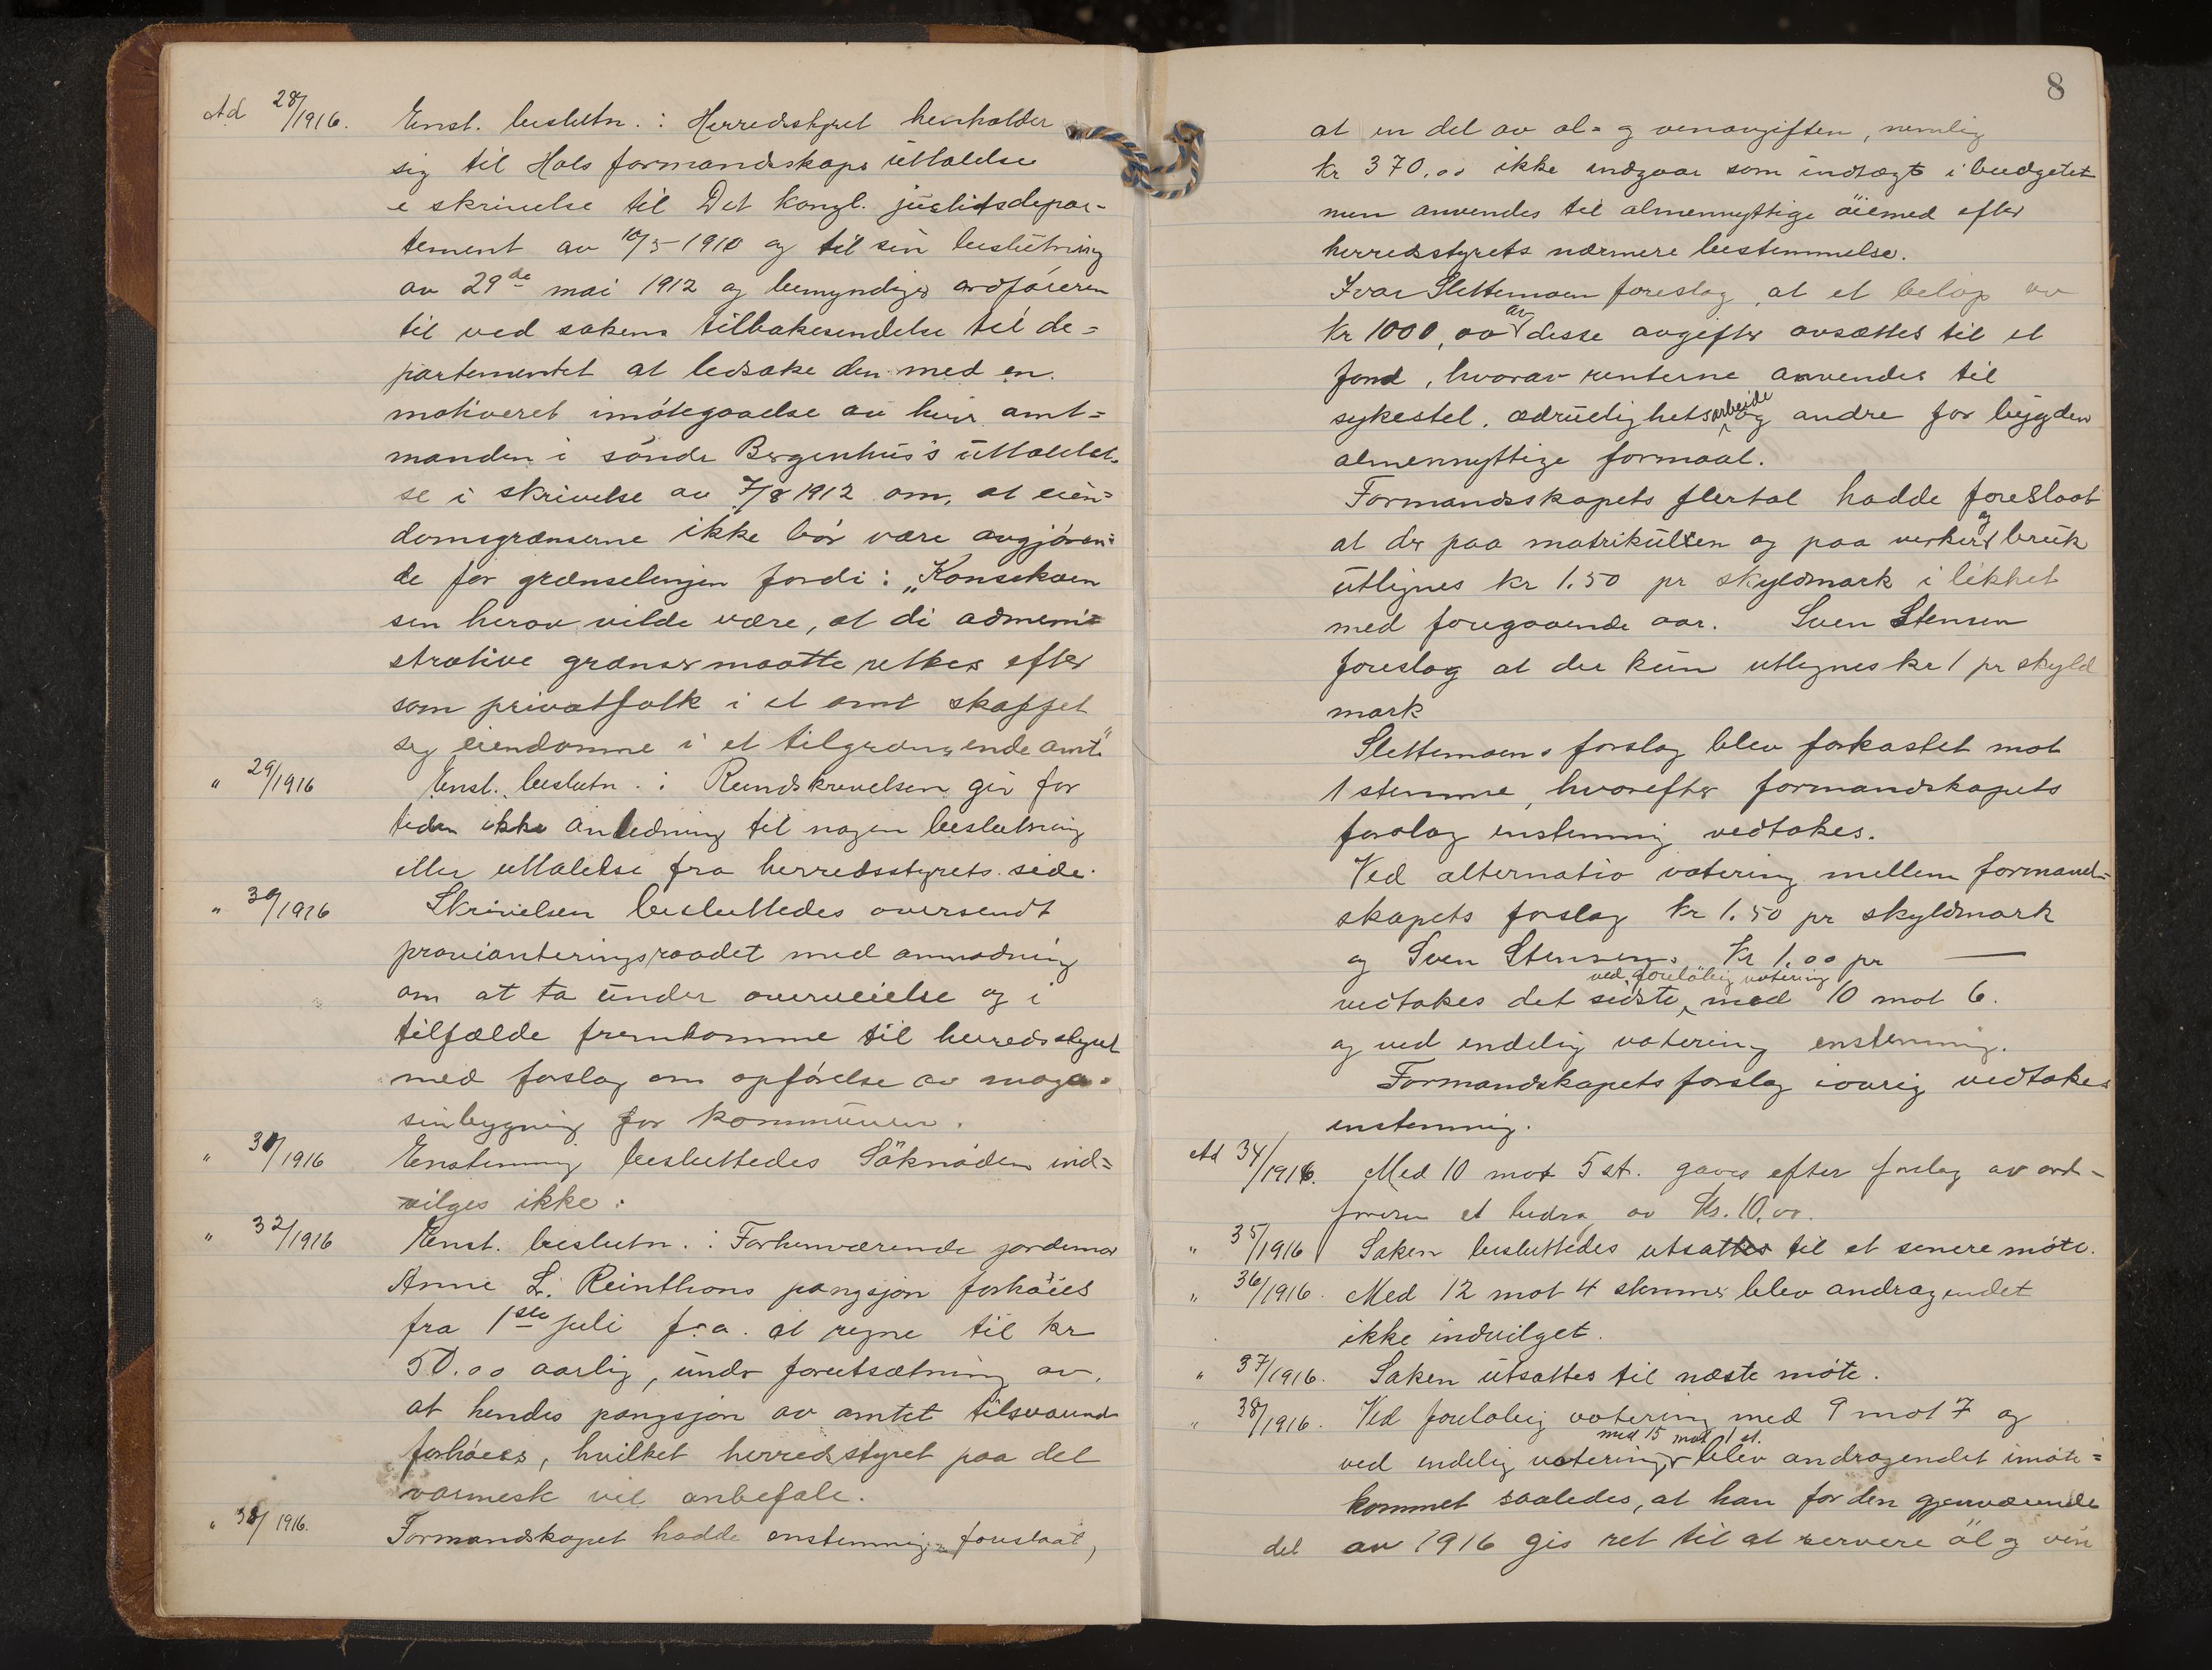 Ad 28/1916. Enst. beslutn.: Herredsstyret henholder
sig til Hols formandskaps uttalelse
i skrivelse til Det kongl. justitsdepar-
tement av 10/5-1910 og til sin beslutning
av 29de mai 1912 og bemyndiges ordføreren
til ved sakens tilbakesendelse til de=
partementet at ledsake den med en
motiveret imøtegaaelse av hvir amt=
manden i søndr Bergenhus's uttalel-
se i skrivelse av 7/8 1912 om, at eien=
domsgrænserne ikke bør være avgjøren=
de for grænselinjen fordi: „Konsekven
sen herav vilde være, at di admini=
strative grænser maatte rettkes efter
som privatfolk i et amt skaffet
sig eiendomme i et tilgrænsende amt."
" 29/1916 Enst. beslutn.: Rundskrivelsen gir for
tiden ikke anledning til nogen beslutning
eller uttalelse fra herredsstyrets side.
" 30/1916 Skrivelsen besluttedes oversendt
provianteringsraadet med anmodning
om at ta under overveielse og i
tilfælde fremkomme til herredsstyret
med forslag om opførelse av maga=
sinbygning for kommunen.
" 31/1916 Enstemmig besluttedes Söknaden ind=
vilges ikke.
" 32/1916 Enst. beslutn.: Forhenværende jordemor
Anne L. Reintons pangsjon forhøies
fra 1ste juli f.a. at regne til kr
50.00 aarlig, undr forutsætning av,
at hendes pangsjon av amtet tilsvarende
forhøies, hvilket herredsstyret paa det
varmeste vil anbefale.
" 33/1916. Formandskapet hadde enstemmig foreslaat,
8
at en del av øl- og venavgiften, nemlig
kr 370.00 ikke indgaar som indtægt i budgetet
men anvendes til almennyttige øiemed efter
herredsstyrets nærmere bestemmelse.
Ivar Slettemoen foreslog, at et beløp av
kr 1000,00 av disse avgifter avsættes til et
fond, hvorav renterne anvendes til
sykestel, ædruelighetsarbeide og andre for bygden
almennyttige formaal.
Formandsskapets flertal hadde foreslaat
at der paa matrikulen og paa verker og bruk
utlignes kr 1.50 pr skyldmark i likhet
med foregaaende aar. Sven Stensen
foreslog at der kun utlignes kr 1 pr skyld
mark
Slettemoens forslag blev forkastet mot
1 stemme, hvorefter formandskapets
forslag enstemmig vedtokes.
Ved alternativ votering mellem formand=
skapets forslag kr 1.50 pr skyldmark
og Sven Stensens kr 1.00 pr —
vedtokes det sidste, ved foreløbig votering med 10 mot 6.
og ved endelig votering enstemmig.
Formandskapets forslag iøvrig vedtokes
enstemmig.
Ad 34/1916. Med 10 mot 5 st. gaves efter forslag av ord-
føreren et bidra av Kr. 10.00.
" 35/1916 Saken besluttedes utsattes til et senere møte.
" 36/1916. Med 12 mot 4 stemmer blev andragendet
ikke indvilget.
" 37/1916. Saken utsattes til næste møte.
" 38/1916. Ved foreløbig votering med 9 mot 7 og
ved endelig votering med 15 mot 1 st. blev andragendet imøte=
kommet saaledes, at han for den gjenværende
del av 1916 gis ret til at servere øl og vin